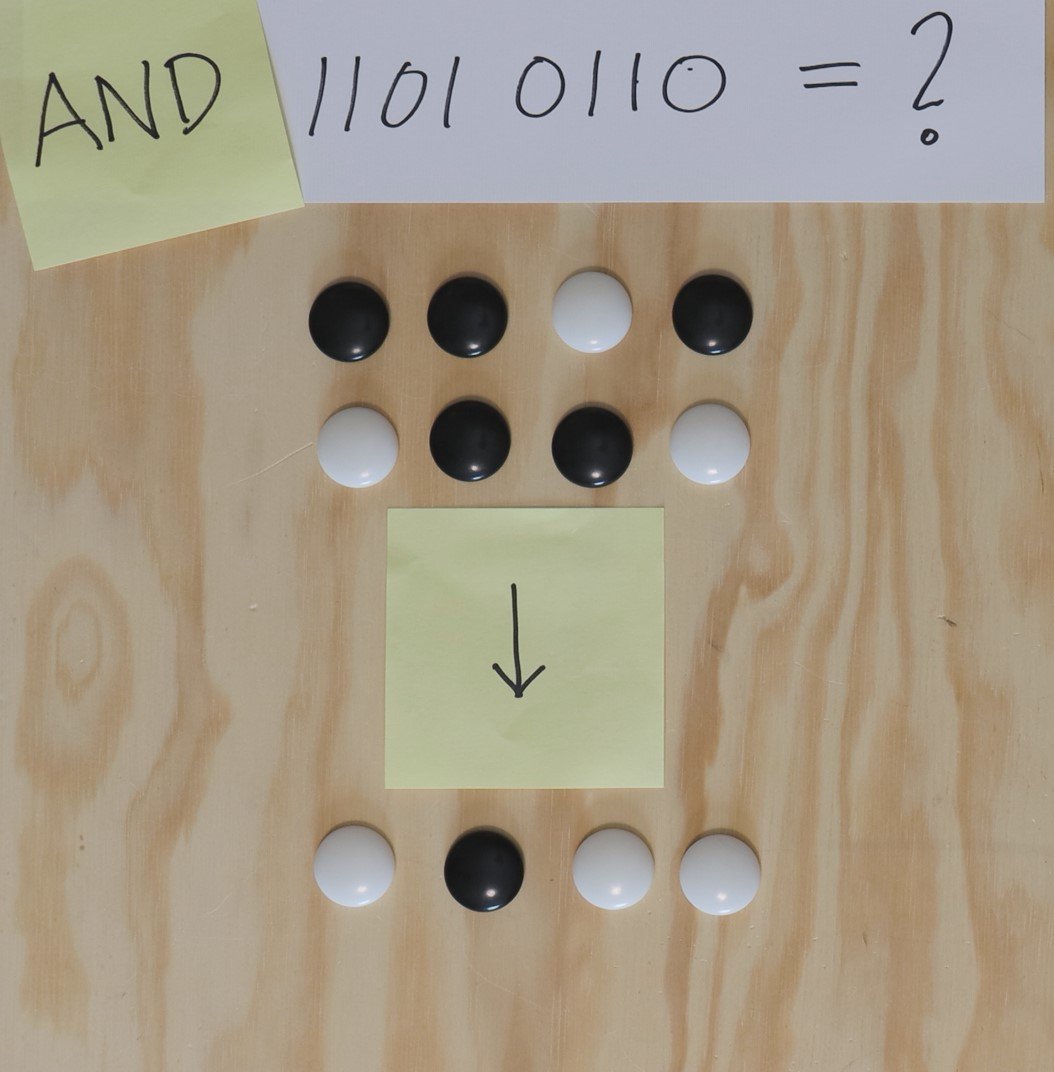 AND 1101 0110 = ?
↓